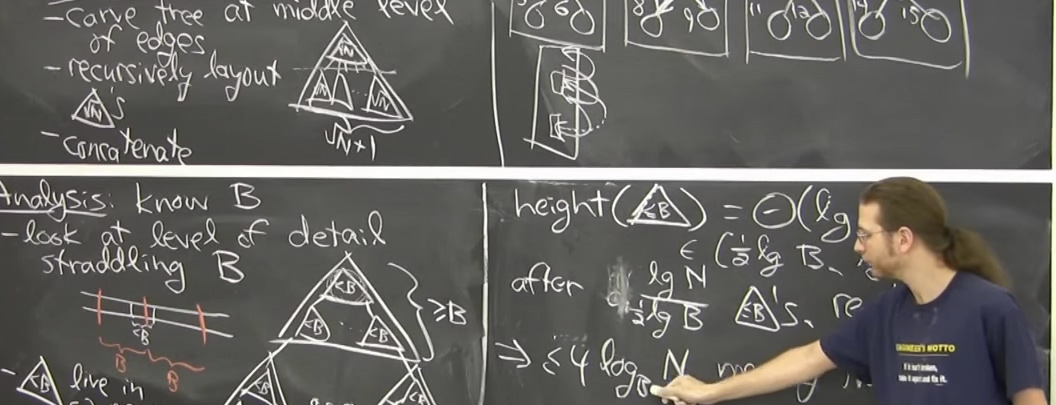 - carve tree at middle level
of edges
- recursively layout
√N 's
- concatenate
√N
√N √N
√N+1
5 6 8 9 11 12 14 15
Analysis: know B
- look at level of detail
straddling B
≤B
B B
≤B
≤B ≤B
≥B
- ≤B live in
≤B
height(≤B) = Θ(lg
∈ (½ lg B,
after lg N
½ lg B ≤B's,
⇒ ≤ 4 log_B N
ENGINEER'S MOTTO
If it isn't broken,
take it apart and fix it.